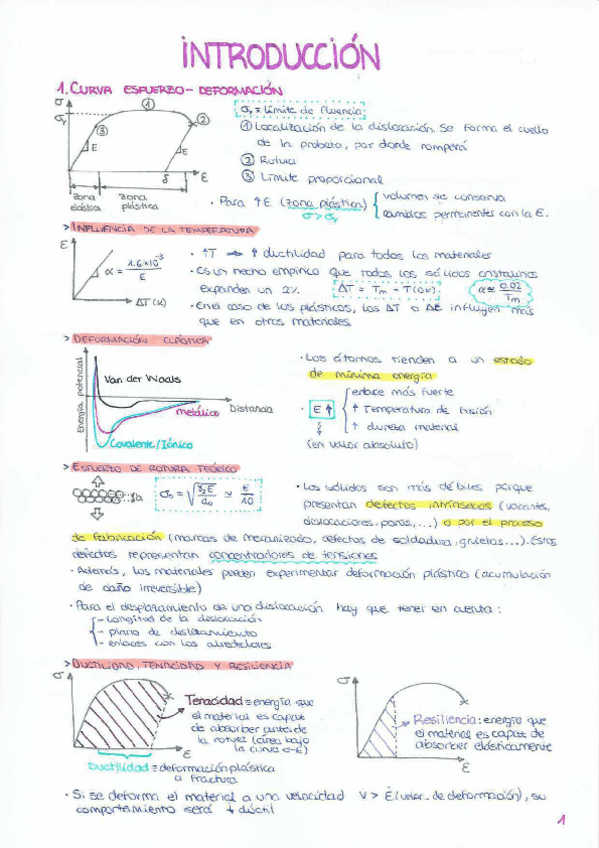 INTRODUCCIÓN
1. CURVA ESFUERZO-DEFORMACIÓN
σ
σy
①
②
③
E
E
δ
ε
zona elástica
zona plástica
σy = Límite de fluencia
① Localización de la dislocación. Se forma el cuello
de la probeta, por donde romperá
② Rotura
③ Límite proporcional
· Para ↑E (zona plástica)
σ > σy
volumen se conserva
cambios permanentes con la E.
> INFLUENCIA DE LA TEMPERATURA
ε
α = 1.6×10⁻³ / E
ΔT (K)
· ↑T → ↑ ductilidad para todos los materiales
· Es un hecho empírico que todos los sólidos cristalinos
expanden un 2%.
ΔT = Tm - T(0K)
α ≈ 0.02 / Tm
· En el caso de los plásticos, los ΔT o Δε influyen más
que en otros materiales.
> DEFORMACIÓN ELÁSTICA
Energía potencial
Van der Waals
metálico
Distancia
Covalente/Iónico
· Los átomos tienden a un estado
de mínima energía
· E↑
enlace más fuerte
↑ Temperatura de fusión
↑ dureza material
(en valor absoluto)
> ESFUERZO DE ROTURA TEÓRICO
σo = √(γsE / ao) ≃ E / 10
· Los sólidos son más débiles porque
presentan defectos intrínsecos (vacantes,
dislocaciones, poros,...) o por el proceso
de fabricación (marcas de mecanizado, defectos de soldadura, grietas...). Estos
defectos representan concentradores de tensiones
· Además, los materiales pueden experimentar deformación plástica (acumulación
de daño irreversible)
· Para el desplazamiento de una dislocación hay que tener en cuenta:
- Longitud de la dislocación
- plano de deslizamiento
- enlaces con los alrededores
> DUCTILIDAD, TENACIDAD Y RESILIENCIA
σ
ε
Tenacidad = energía que
el material es capaz
de absorber antes de
la rotura (área bajo
la curva σ-ε)
Ductilidad = deformación plástica
a fractura
σ
ε
Resiliencia: energía que
el material es capaz de
absorber elásticamente
· Si se deforma el material a una velocidad v > ε̇ (veloc. de deformación), su
comportamiento será ↓ dúctil
1